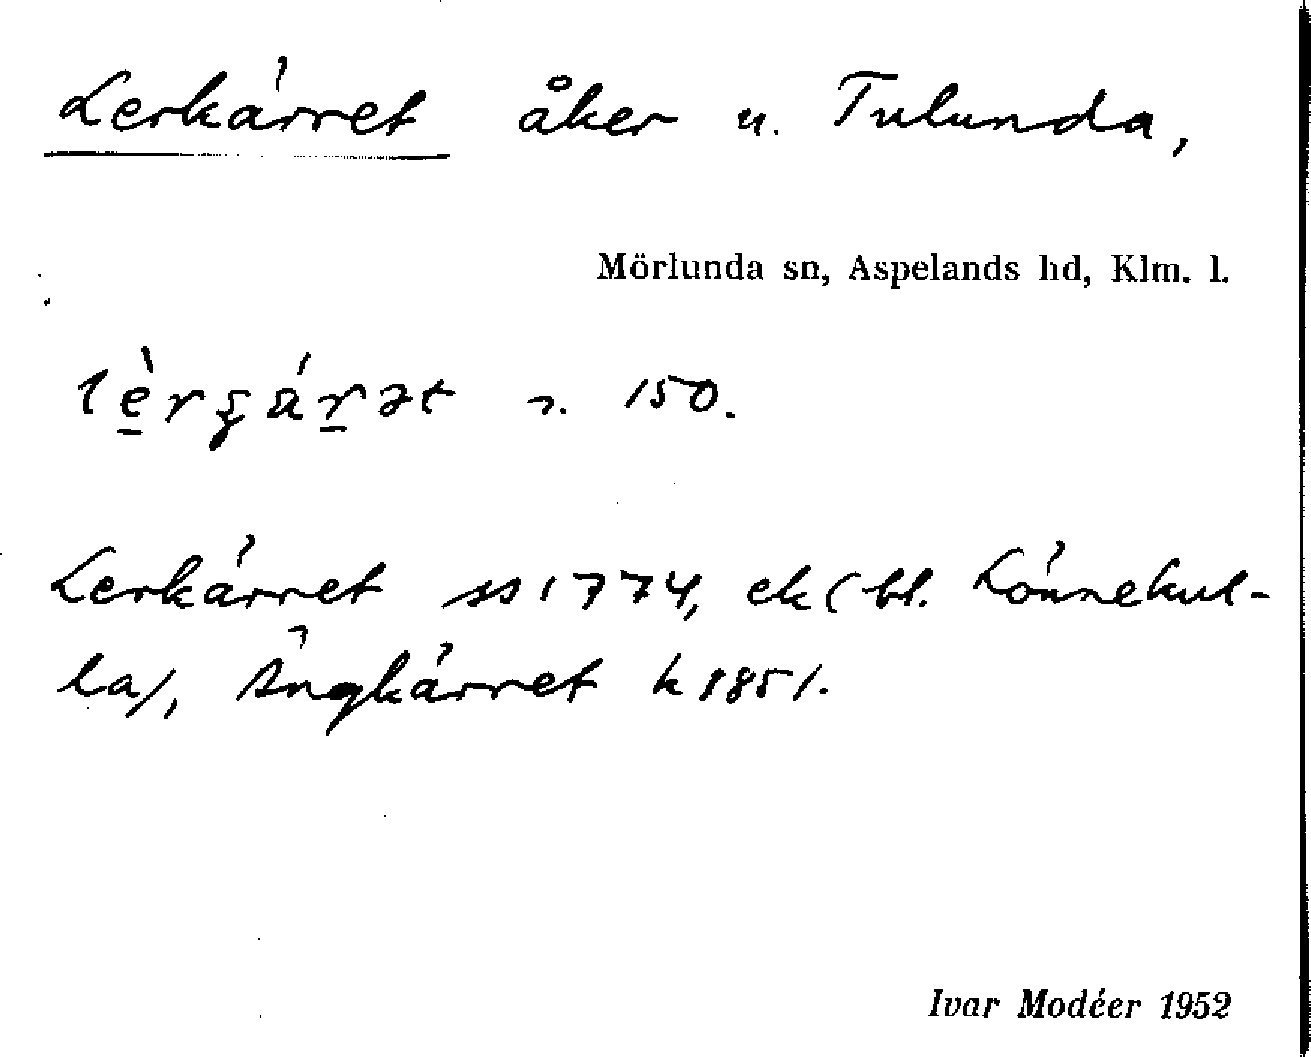 Lerkärret åker u. Tulunda,
Mörlunda sn, Aspelands hd, Klm. l.
n. 150.
Lerkärret ss 1774, ek (bl. Lönnekul-
la), Ängkärret k 1851.
Ivar Modéer 1952